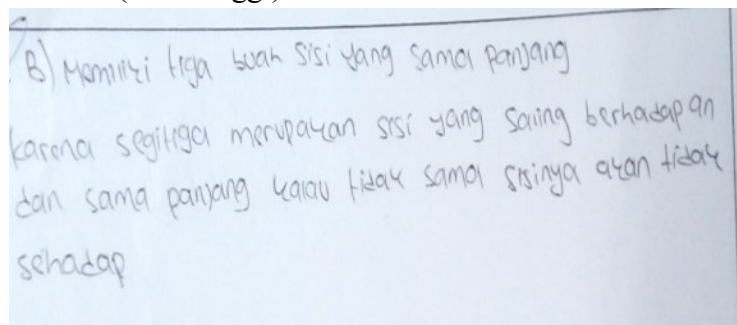 B) Memiliki tiga buah sisi yang sama panjang
karena segitiga merupakan sisi yang saling berhadapan
dan sama panjang kalau tidak sama sisinya akan tidak
sehadap